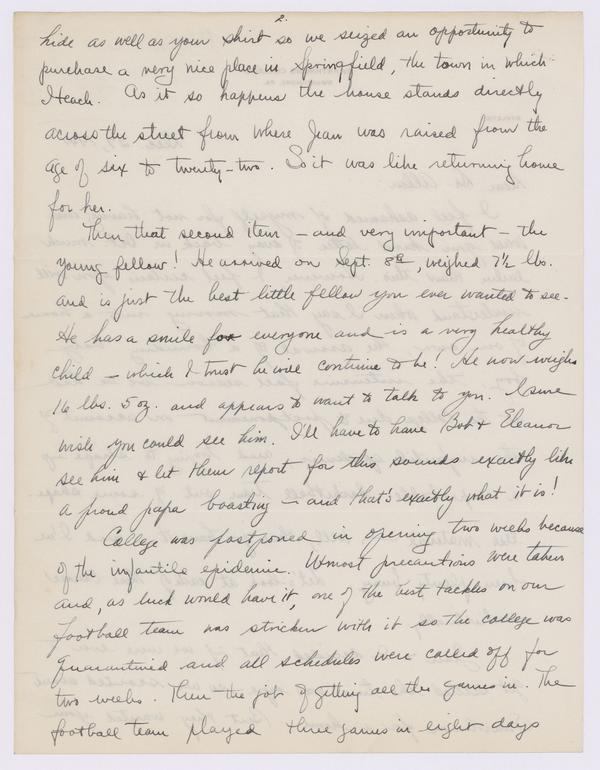 2.
hide as well as your shirt so we seized an opportunity to
purchase a very nice place in Springfield, the town in which
I teach. As it so happens the house stands directly
across the street from where Jean was raised from the
age of six to twenty-two. So it was like returning home
for her.
Then that second item – and very important – the
young fellow! He arrived on Sept. 8th, weighed 7½ lbs.
and is just the best little fellow you ever wanted to see.
He has a smile for everyone and is a very healthy
child – which I trust he will continue to be! He now weighs
16 lbs. 5 oz. and appears to want to talk to you. I sure
wish you could see him. I'll have to have Bob & Eleanor
see him & let them report for this sounds exactly like
a proud papa boasting – and that's exactly what it is!
College was postponed in opening two weeks because
of the infantile epidemic. Utmost precautions were taken
and, as luck would have it, one of the best tackles on our
football team was stricken with it so the college was
quarantined and all schedules were called off for
two weeks. Then the job of getting all the games in. The
football team played three games in eight days